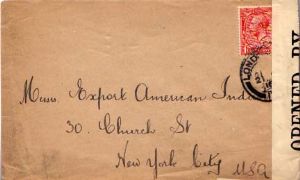 Messrs Export American Indus
30. Church St
New York City USA
LONDON
OPENED BY